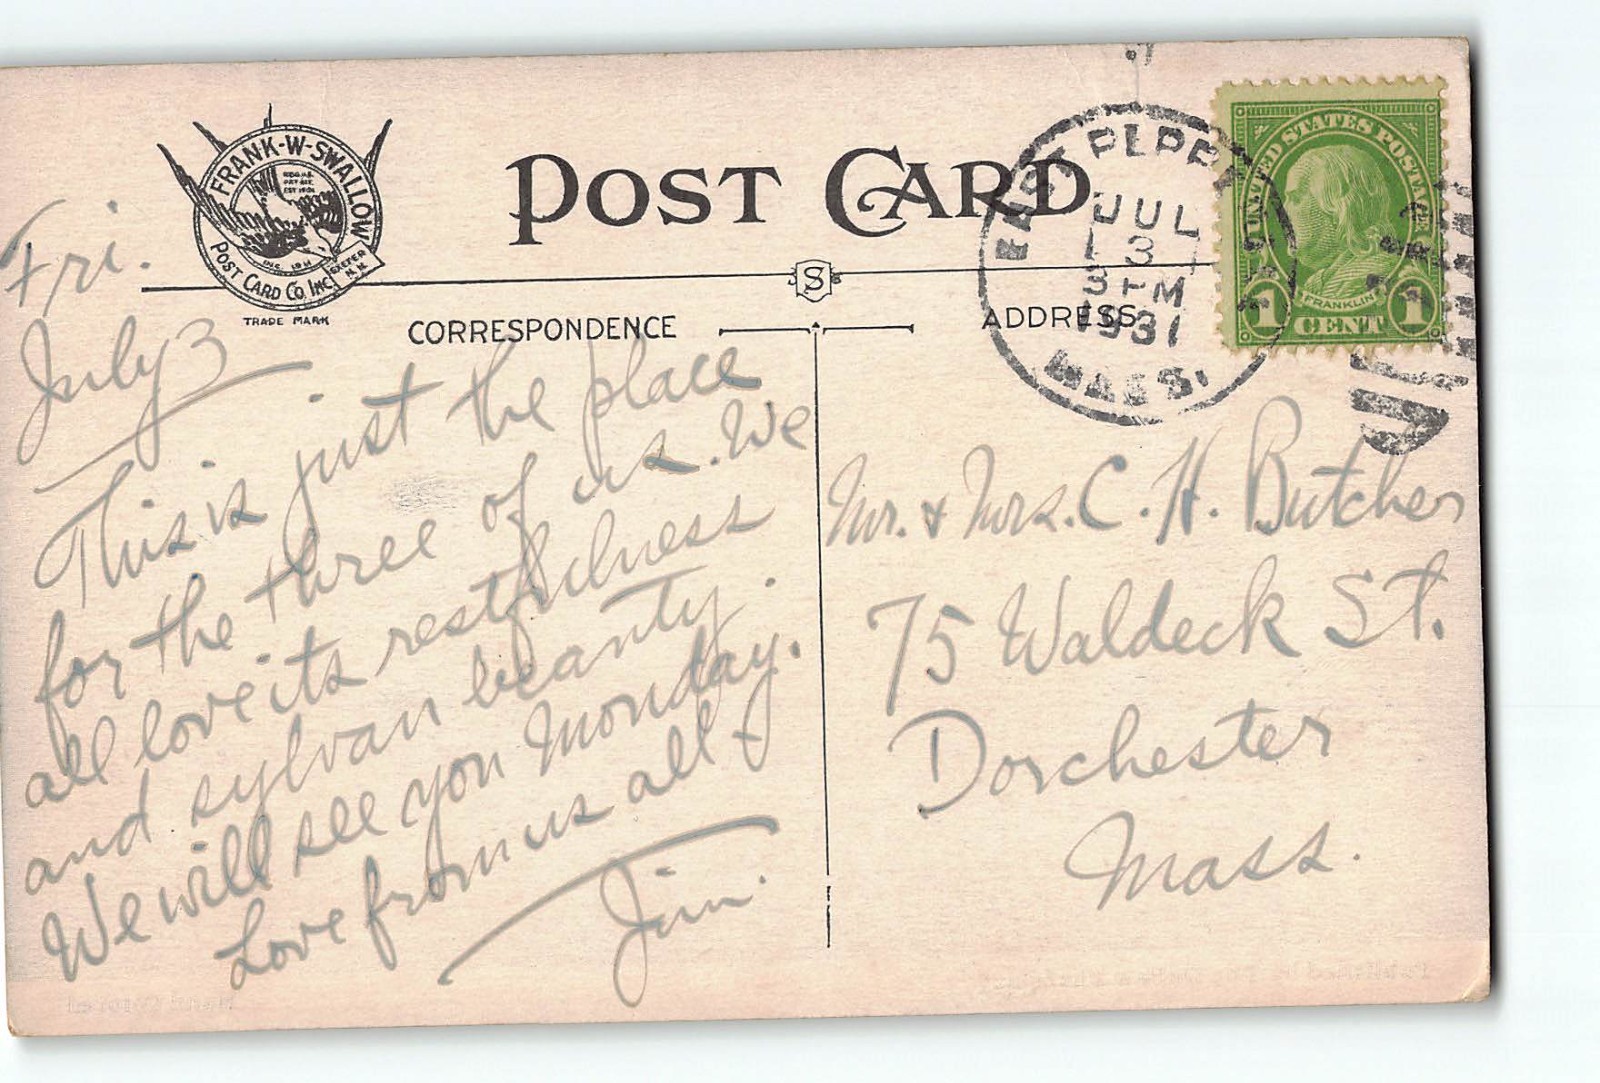 FRANK-W-SWALLOW
POST CARD CO. INC.
EXETER
N.H.
TRADE MARK
POST CARD
S
CORRESPONDENCE
ADDRESS
EAST PEPP
JUL
3
3 PM
1931
MASS.
UNITED STATES POSTAGE
FRANKLIN
1 CENT 1
Fri.
July 3
This is just the place
for the three of us. We
all love its restfulness
and sylvan beauty.
We will see you Monday.
Love from us all-
Jim
Mr. & Mrs. C. H. Butcher
75 Waldeck St.
Dorchester
Mass.